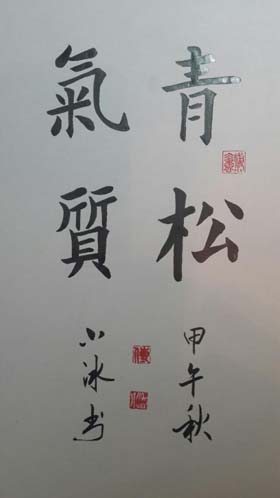 青松
氣質
甲午秋
小冰书